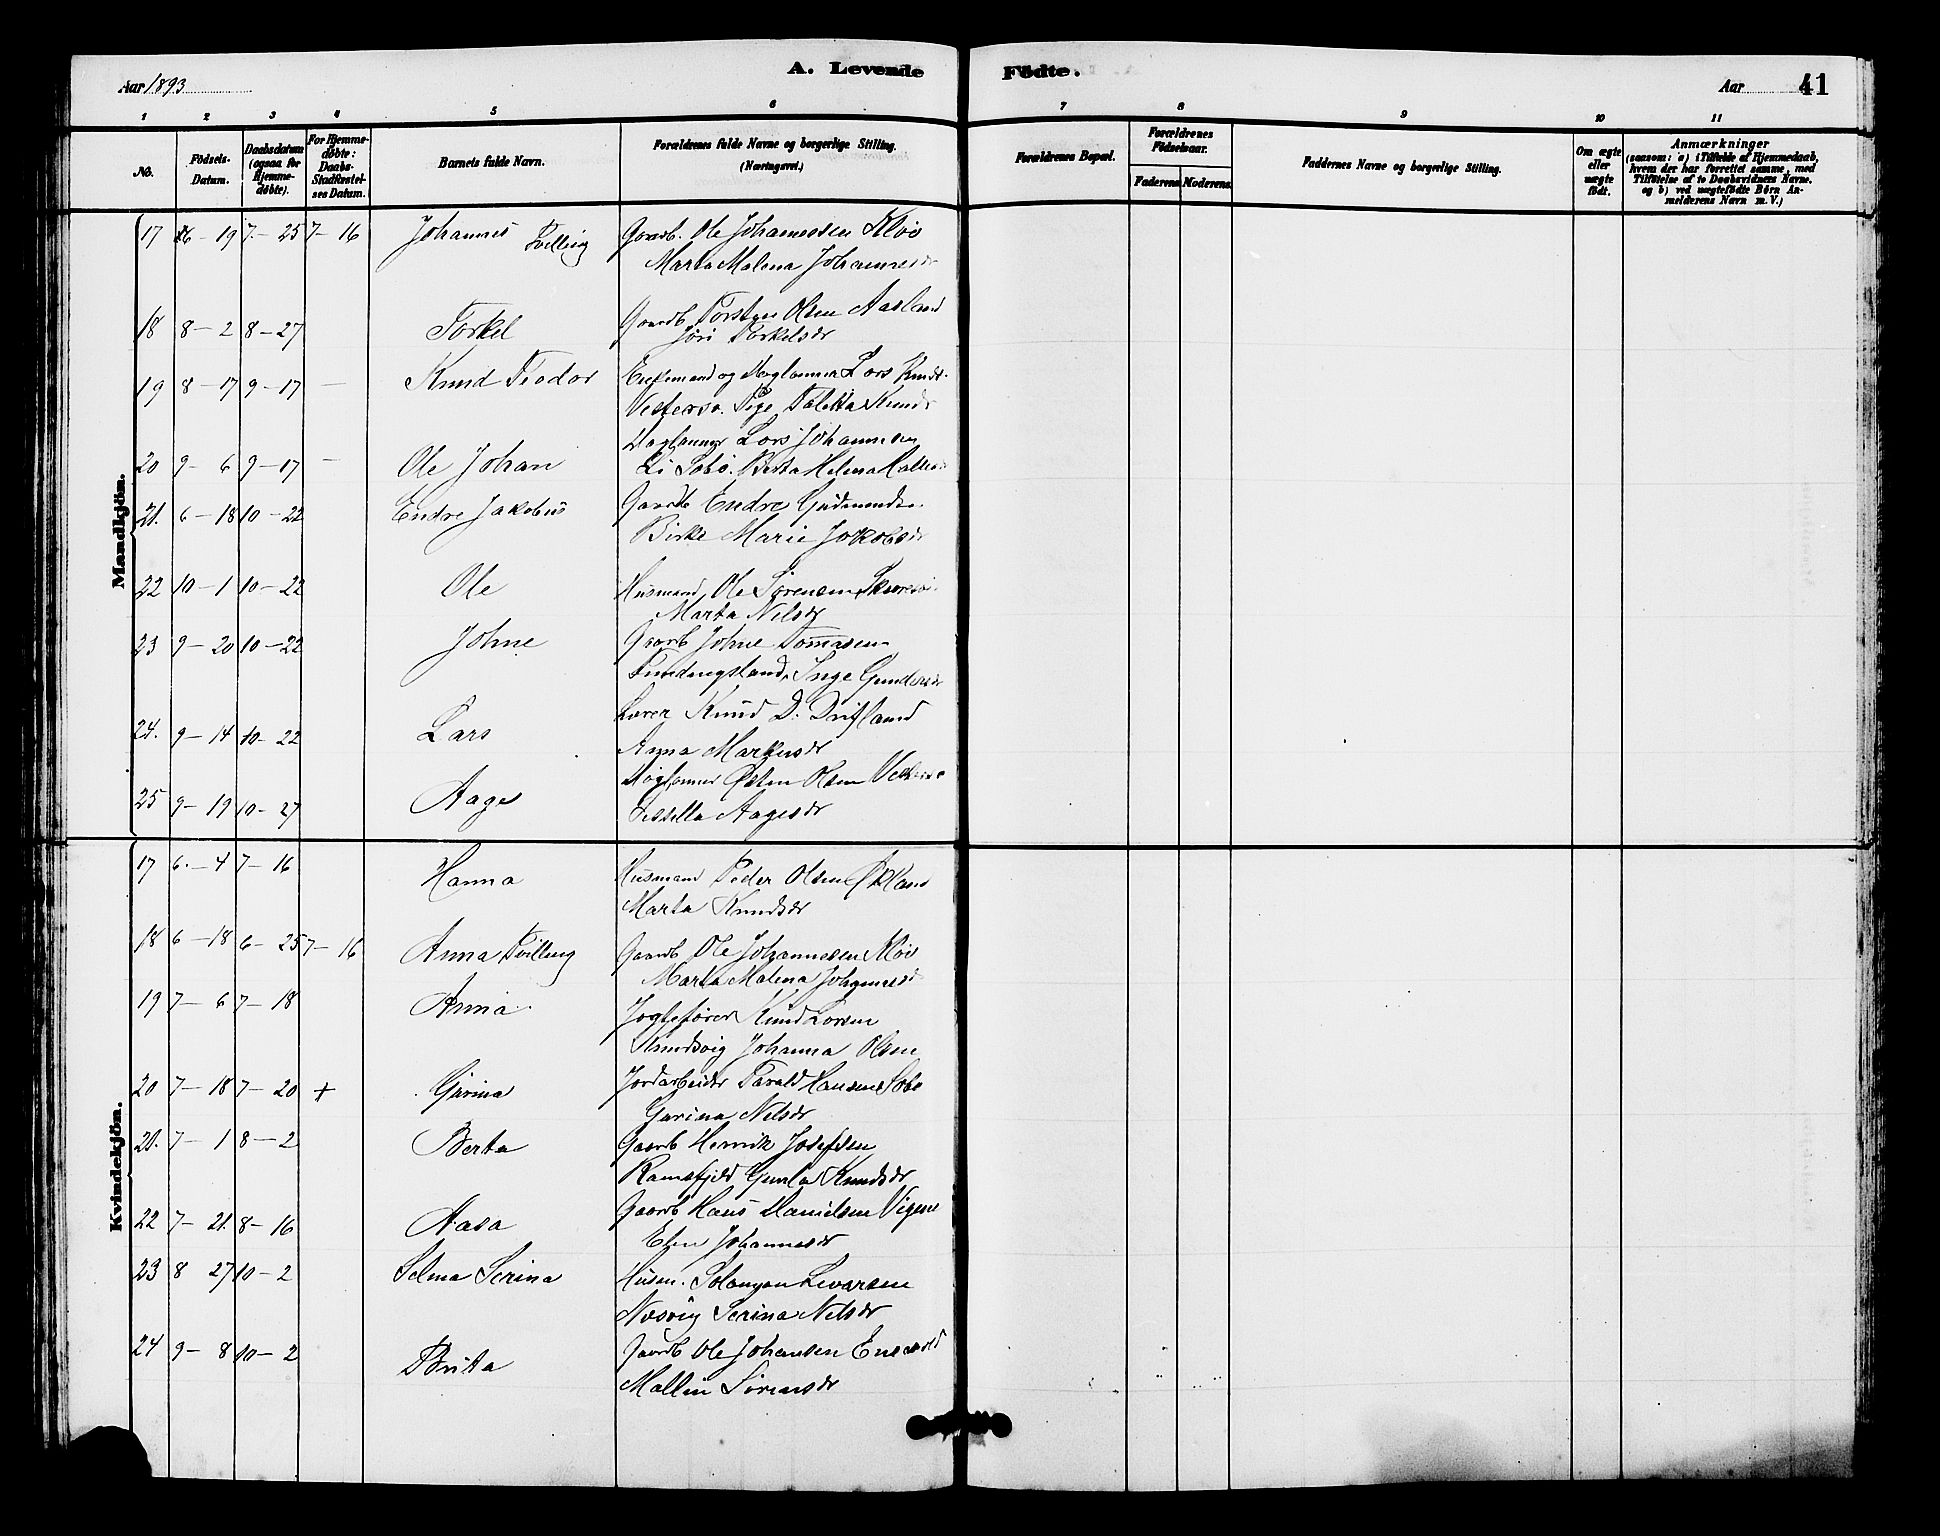 A. Levende Födte.
Aar 1893
Aar
41
1 2 3 4 5 6 7 8 9 10 11
No.
Födsels-Datum.
Daabsdatum (ogsaa for Hjemme-døbte).
For Hjemme-døbte: Daabs-Stadfæstel-ses Datum.
Barnets fulde Navn.
Forældrenes fulde Navne og borgerlige Stilling. (Næringsvei.)
Forældrenes Bopæl.
Forældrenes Födselsaar.
Faderens. Moderens.
Faddernes Navne og borgerlige Stilling.
Om ægte eller uægte födt.
Anmærkninger
(saasom: a) i Tilfælde af Hjemmedaab, hvem der har forrettet samme, med Tilföielse af to Daabsvidners Navne, og b) ved uægtefødte Börn An-melderens Navn m. V.)
Mandkjön.
17 6-19 7-25 7-16 Johannes Tvilling Gaardb. Ole Johannessen Kløv
Marta Malena Johannesdr
18 8-2 8-27 Torkel Gaardb Torsten Olsen Aasland
Jøri Torkelsdr
19 8-17 9-17 — Knud Teodor Enkemand og Daglønner Lars Knuds.
Vestersø. Pige Taletta Knudsdr
20 9-6 9-17 — Ole Johan Daglønner Lars Johannsen
Li Sebø. Berta Helena
21. 6-18 10-22 Endre Jakobus Gaardb Endre Gudmunds.
Birke Marie Jakobsdr
22 10-1 10-22 Ole Husmand Ole Sørensen
Marta Nelsdr
23 9-20 10-22 Johne Gaardb Johne Tomasen
Tundingsland, Inge Gundersdr
24. 9-14 10-22 Lars Lærer Knud D. Drifland
Anna Markusdr
25 9-19 10-27 Aage Dagløнner Østen Olsen
Sessilla Aagesdr
Kvindekjön.
17 6-4 7-16 Hanna Husmand Peder Olsen Økland
Marta Knudsdr
18 6-18 6-25 7-16 Anna Tvilling Gaardb Ole Johannesen Kløv
Marta Malena Johannesdr
19 7-6 7-18 Anna Jægtefører Knud Larsen
Knudsvig Johanna Olsen
20 7-18 7-20 + Gurina Jordarbeider Tarald Hansen Sebø
Gurina Nelsdr
21. 7-1 8-2 Berta Gaardb Henrik Josefsen
Ramsfjeld Gunla Knudsdr
22 7-21. 8-16 Aasa Gaardb Hans Danielsen Vigene
Elen Johannesdr
23 8 27 10-2 Selma Serina Husm. Salomon Sevarsen
Nesvig Serina Nelsdr
24 9-8 10-2 Brita Gaardb Ole Johansen
Mallin Sørensdr